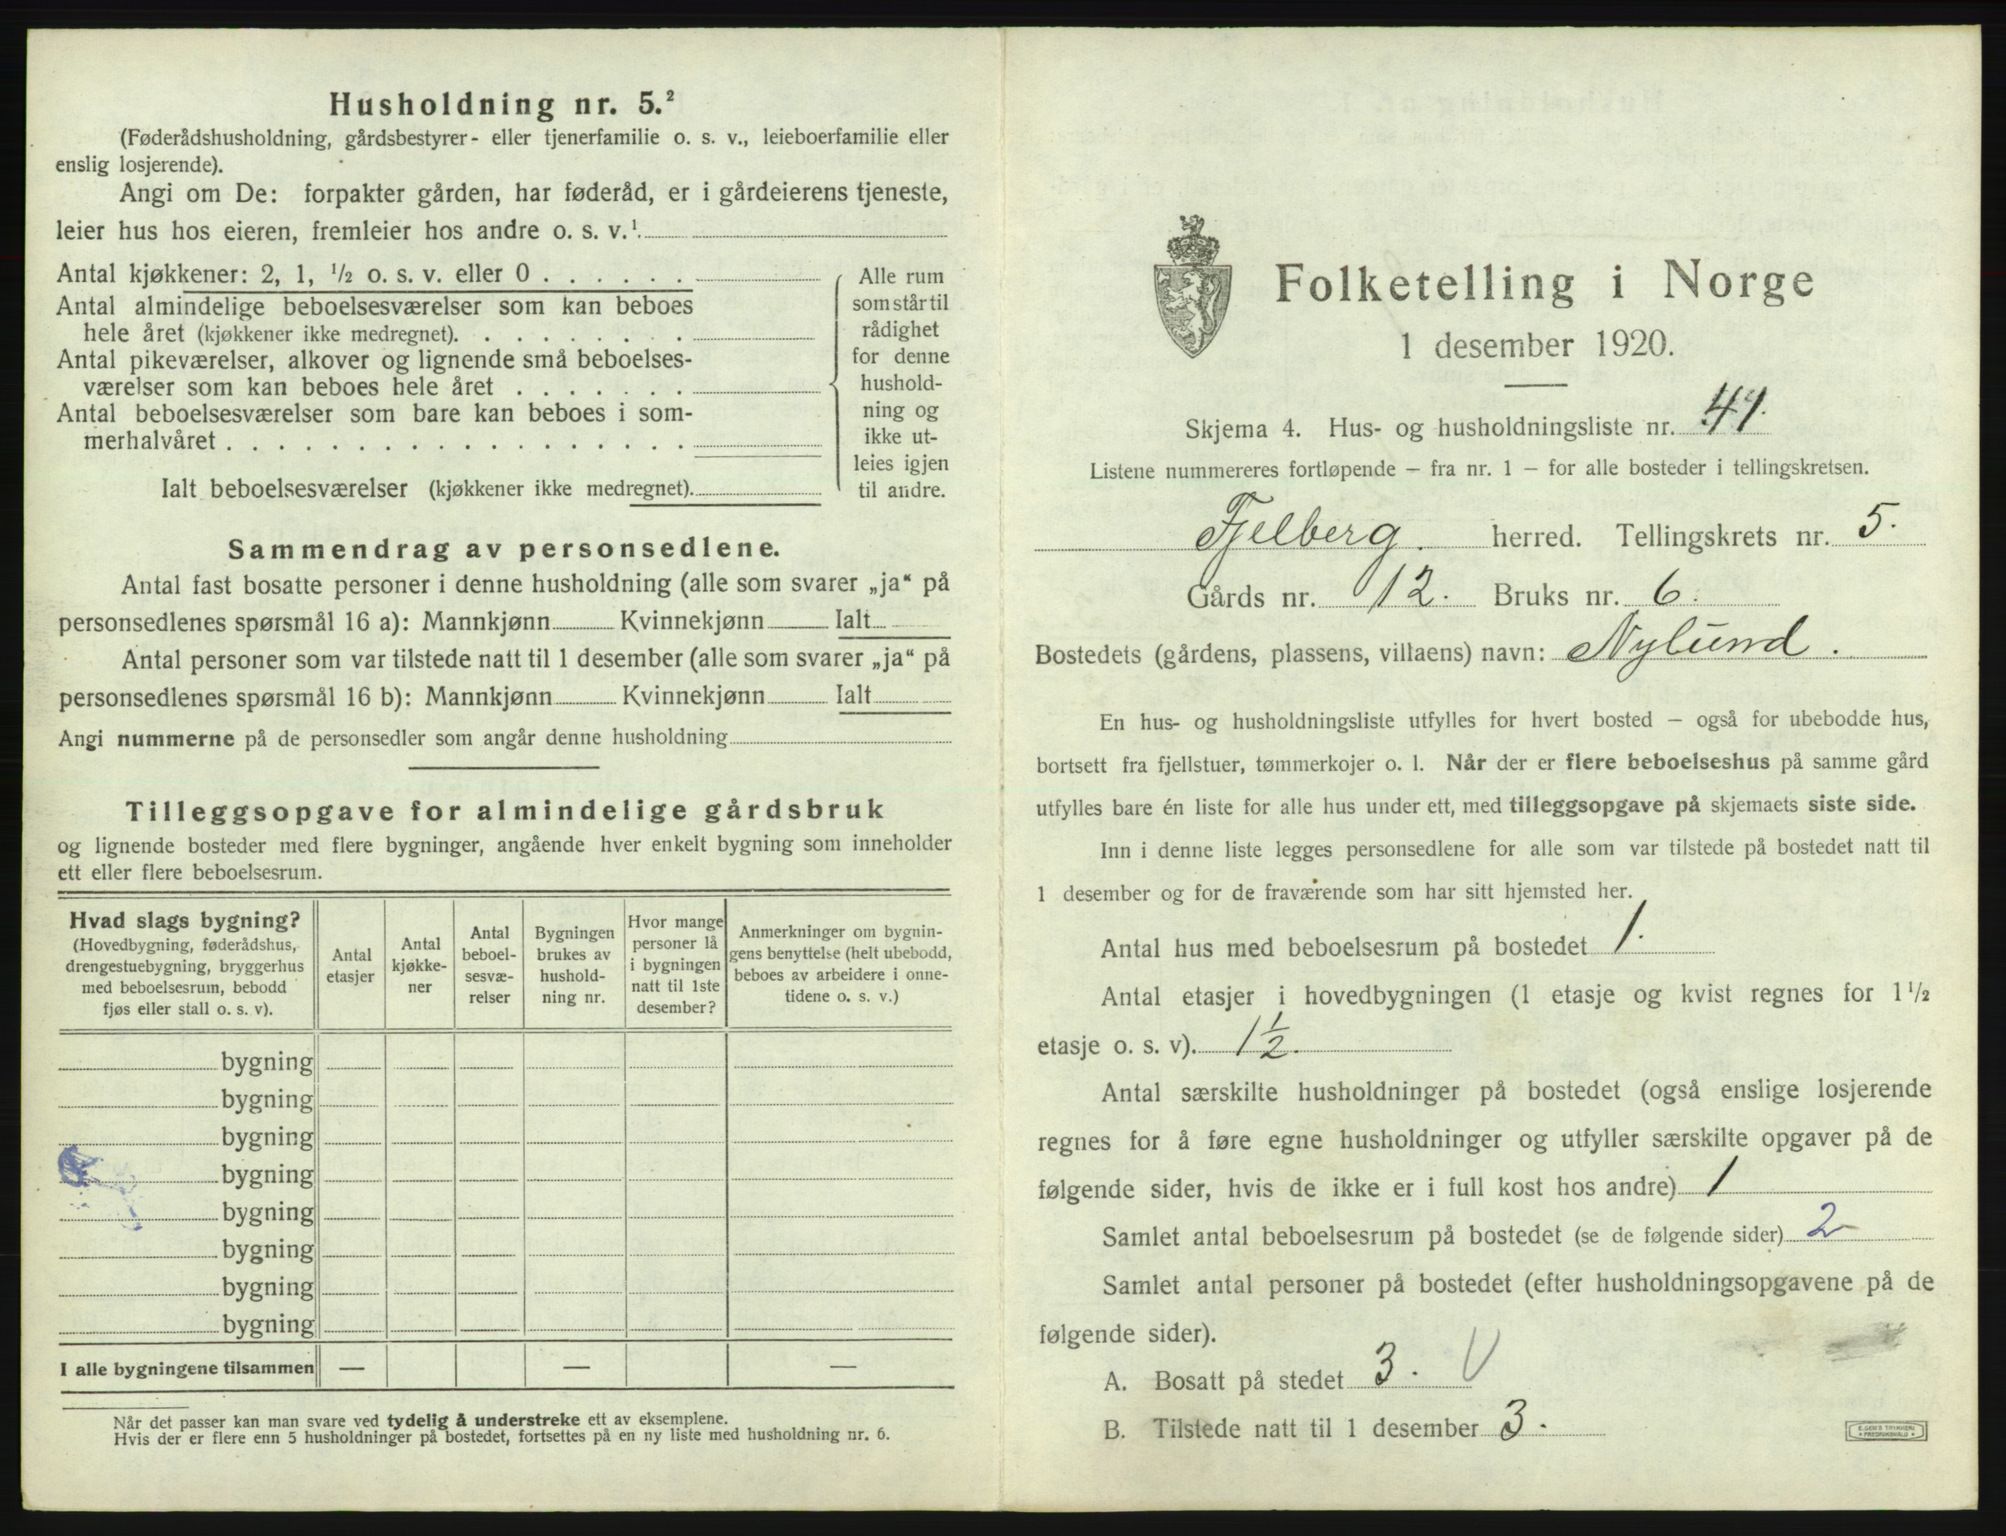 Husholdning nr. 5.²
(Føderådshusholdning, gårdsbestyrer- eller tjenerfamilie o. s. v., leieboerfamilie eller
enslig losjerende).
Angi om De: forpakter gården, har føderåd, er i gårdeierens tjeneste,
leier hus hos eieren, fremleier hos andre o. s. v.¹
Antal kjøkkener: 2, 1, ½ o. s. v. eller 0
Antal almindelige beboelsesværelser som kan beboes
hele året (kjøkkener ikke medregnet).
Antal pikeværelser, alkover og lignende små beboelses-
værelser som kan beboes hele året
Antal beboelsesværelser som bare kan beboes i som-
merhalvåret
Ialt beboelsesværelser (kjøkkener ikke medregnet).
Alle rum
som står til
rådighet
for denne
hushold-
ning og
ikke ut-
leies igjen
til andre.
Sammendrag av personsedlene.
Antal fast bosatte personer i denne husholdning (alle som svarer „ja“ på
personsedlenes spørsmål 16 a): Mannkjønn Kvinnekjønn Ialt
Antal personer som var tilstede natt til 1 desember (alle som svarer „ja“ på
personsedlenes spørsmål 16 b): Mannkjønn Kvinnekjønn Ialt
Angi nummerne på de personsedler som angår denne husholdning
Tilleggsopgave for almindelige gårdsbruk
og lignende bosteder med flere bygninger, angående hver enkelt bygning som inneholder
ett eller flere beboelsesrum.
Hvad slags bygning?
(Hovedbygning, føderådshus,
drengestuebygning, bryggerhus
med beboelsesrum, bebodd
fjøs eller stall o. s. v).
Antal
etasjer
Antal
kjøkke-
ner
Antal
beboel-
sesvæ-
relser
Bygningen
brukes av
hushold-
ning nr.
Hvor mange
personer lå
i bygningen
natt til 1ste
desember?
Anmerkninger om bygnin-
gens benyttelse (helt ubebodd,
beboes av arbeidere i onne-
tidene o. s. v.)
bygning
bygning
bygning
bygning
bygning
bygning
bygning
bygning
I alle bygningene tilsammen — — —
Når det passer kan man svare ved tydelig å understreke ett av eksemplene.
Hvis der er flere enn 5 husholdninger på bostedet, fortsettes på en ny liste med husholdning nr. 6.
Folketelling i Norge
1 desember 1920.
Skjema 4. Hus- og husholdningsliste nr. 41.
Listene nummereres fortløpende – fra nr. 1 – for alle bosteder i tellingskretsen.
Fjelberg. herred. Tellingskrets nr. 5.
Gårds nr. 12. Bruks nr. 6.
Bostedets (gårdens, plassens, villaens) navn: Nylund.
En hus- og husholdningsliste utfylles for hvert bosted – også for ubebodde hus,
bortsett fra fjellstuer, tømmerkojer o. l. Når der er flere beboelseshus på samme gård
utfylles bare én liste for alle hus under ett, med tilleggsopgave på skjemaets siste side.
Inn i denne liste legges personsedlene for alle som var tilstede på bostedet natt til
1 desember og for de fraværende som har sitt hjemsted her.
Antal hus med beboelsesrum på bostedet 1.
Antal etasjer i hovedbygningen (1 etasje og kvist regnes for 1½
etasje o. s. v). 1½.
Antal særskilte husholdninger på bostedet (også enslige losjerende
regnes for å føre egne husholdninger og utfyller særskilte opgaver på de
følgende sider, hvis de ikke er i full kost hos andre) 1
Samlet antal beboelsesrum på bostedet (se de følgende sider) 2
Samlet antal personer på bostedet (efter husholdningsopgavene på de
følgende sider).
A. Bosatt på stedet 3. V
B. Tilstede natt til 1 desember 3.